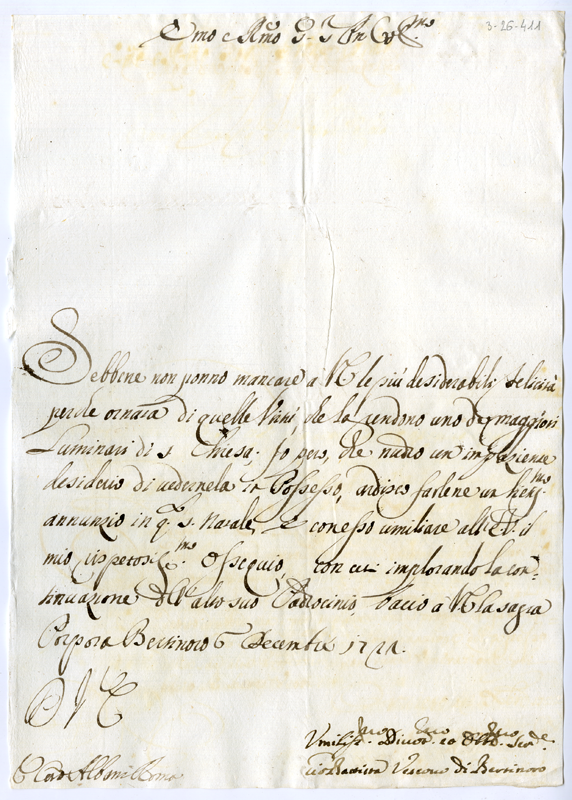 3-26-411
Emo e Rmo
Sebbene non ponno mancare a V le più desiderabili felicità
perche ornata di quelle Virtù che la rendono uno de maggiori
Luminari di S. Chiesa. Io però, che nudro un impaziente
desiderio di vedernela in Possesso, ardisco farlene un
annunzio in q.to s. Natale, e con esso umiliare all' il
mio rispetosiss.mo Ossequio, con cui implorando la con-
tinuazione dell' alto suo Padrocinio, bacio a V la sagra
Porpora Bertinoro 6 Decembre
V. E.
Umiliss.
Vescovo di Bertinoro